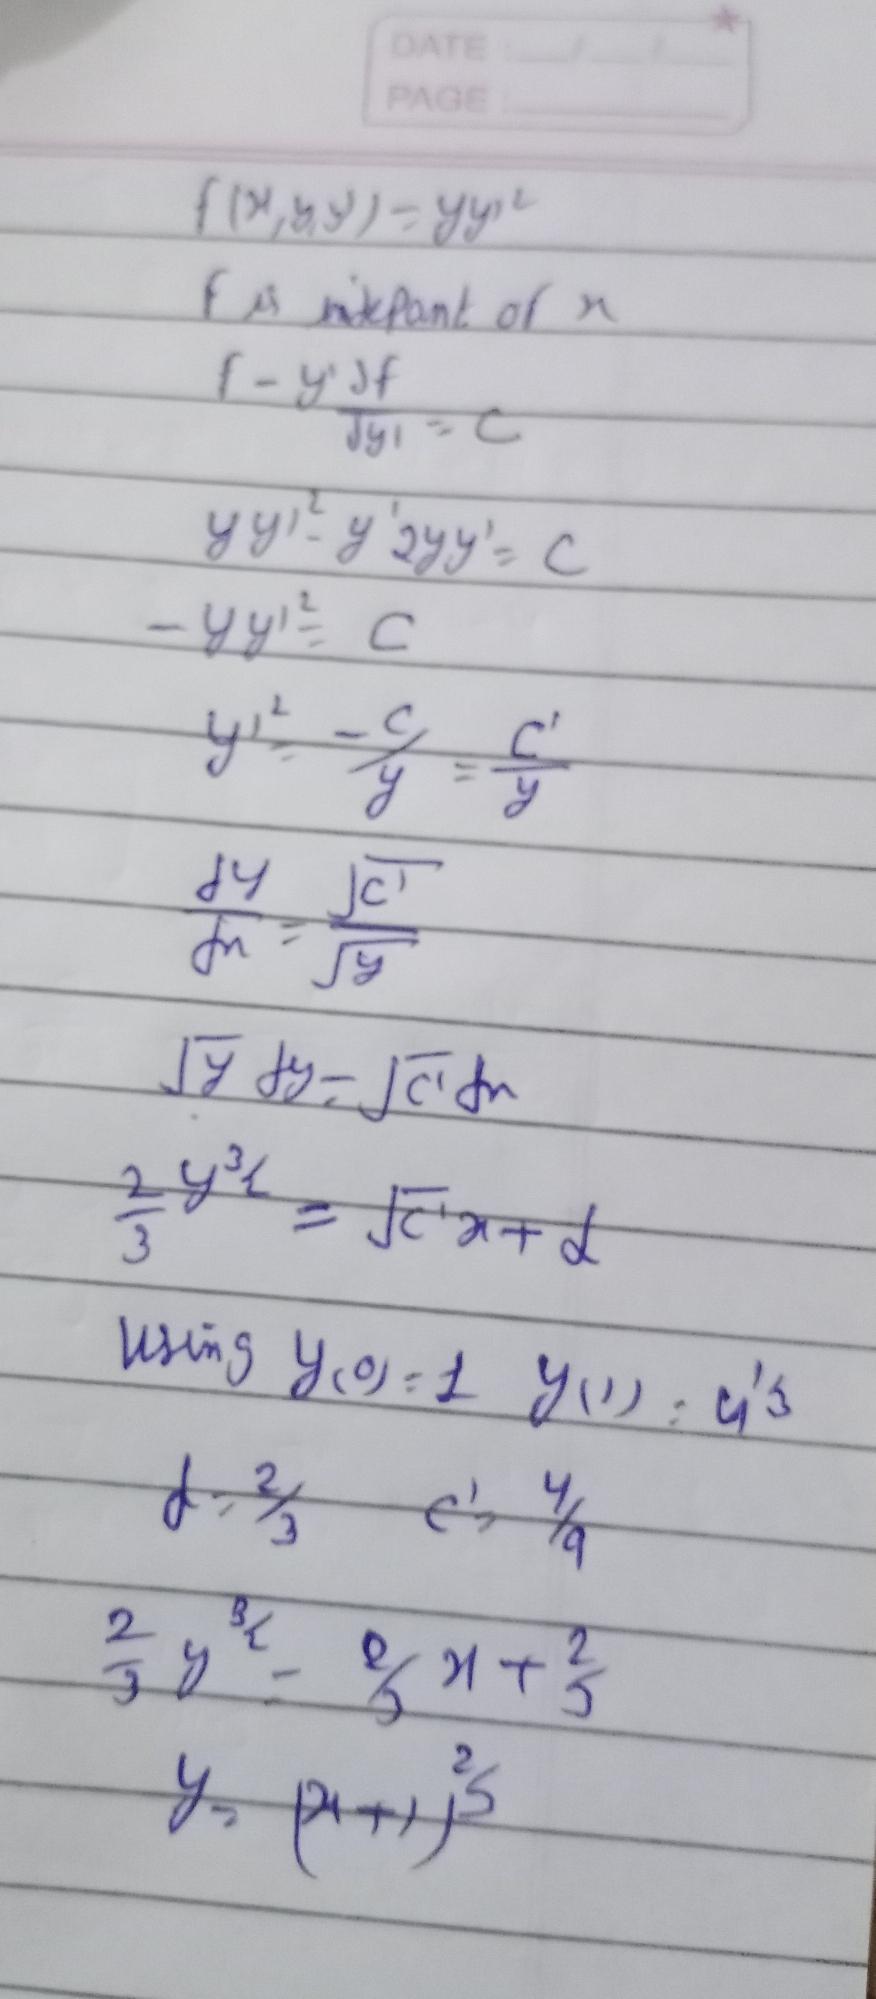 DATE : __/__/__
PAGE :
f(x,y,y') = yy'²
f is of x
f - y' ∂f/∂y' = C
yy'² - y' 2yy' = C
- yy'² = C
y'² = -C/y = C'/y
dy/dx = √C'/√y
√y dy = √C' dx
2/3 y^3/2 = √C' x + d
Using y(0) = 1 y(1) = 4^1/3
d = 2/3 C' = 4/9
2/3 y^3/2 = 2/3 x + 2/3
y = (x+1)^2/3